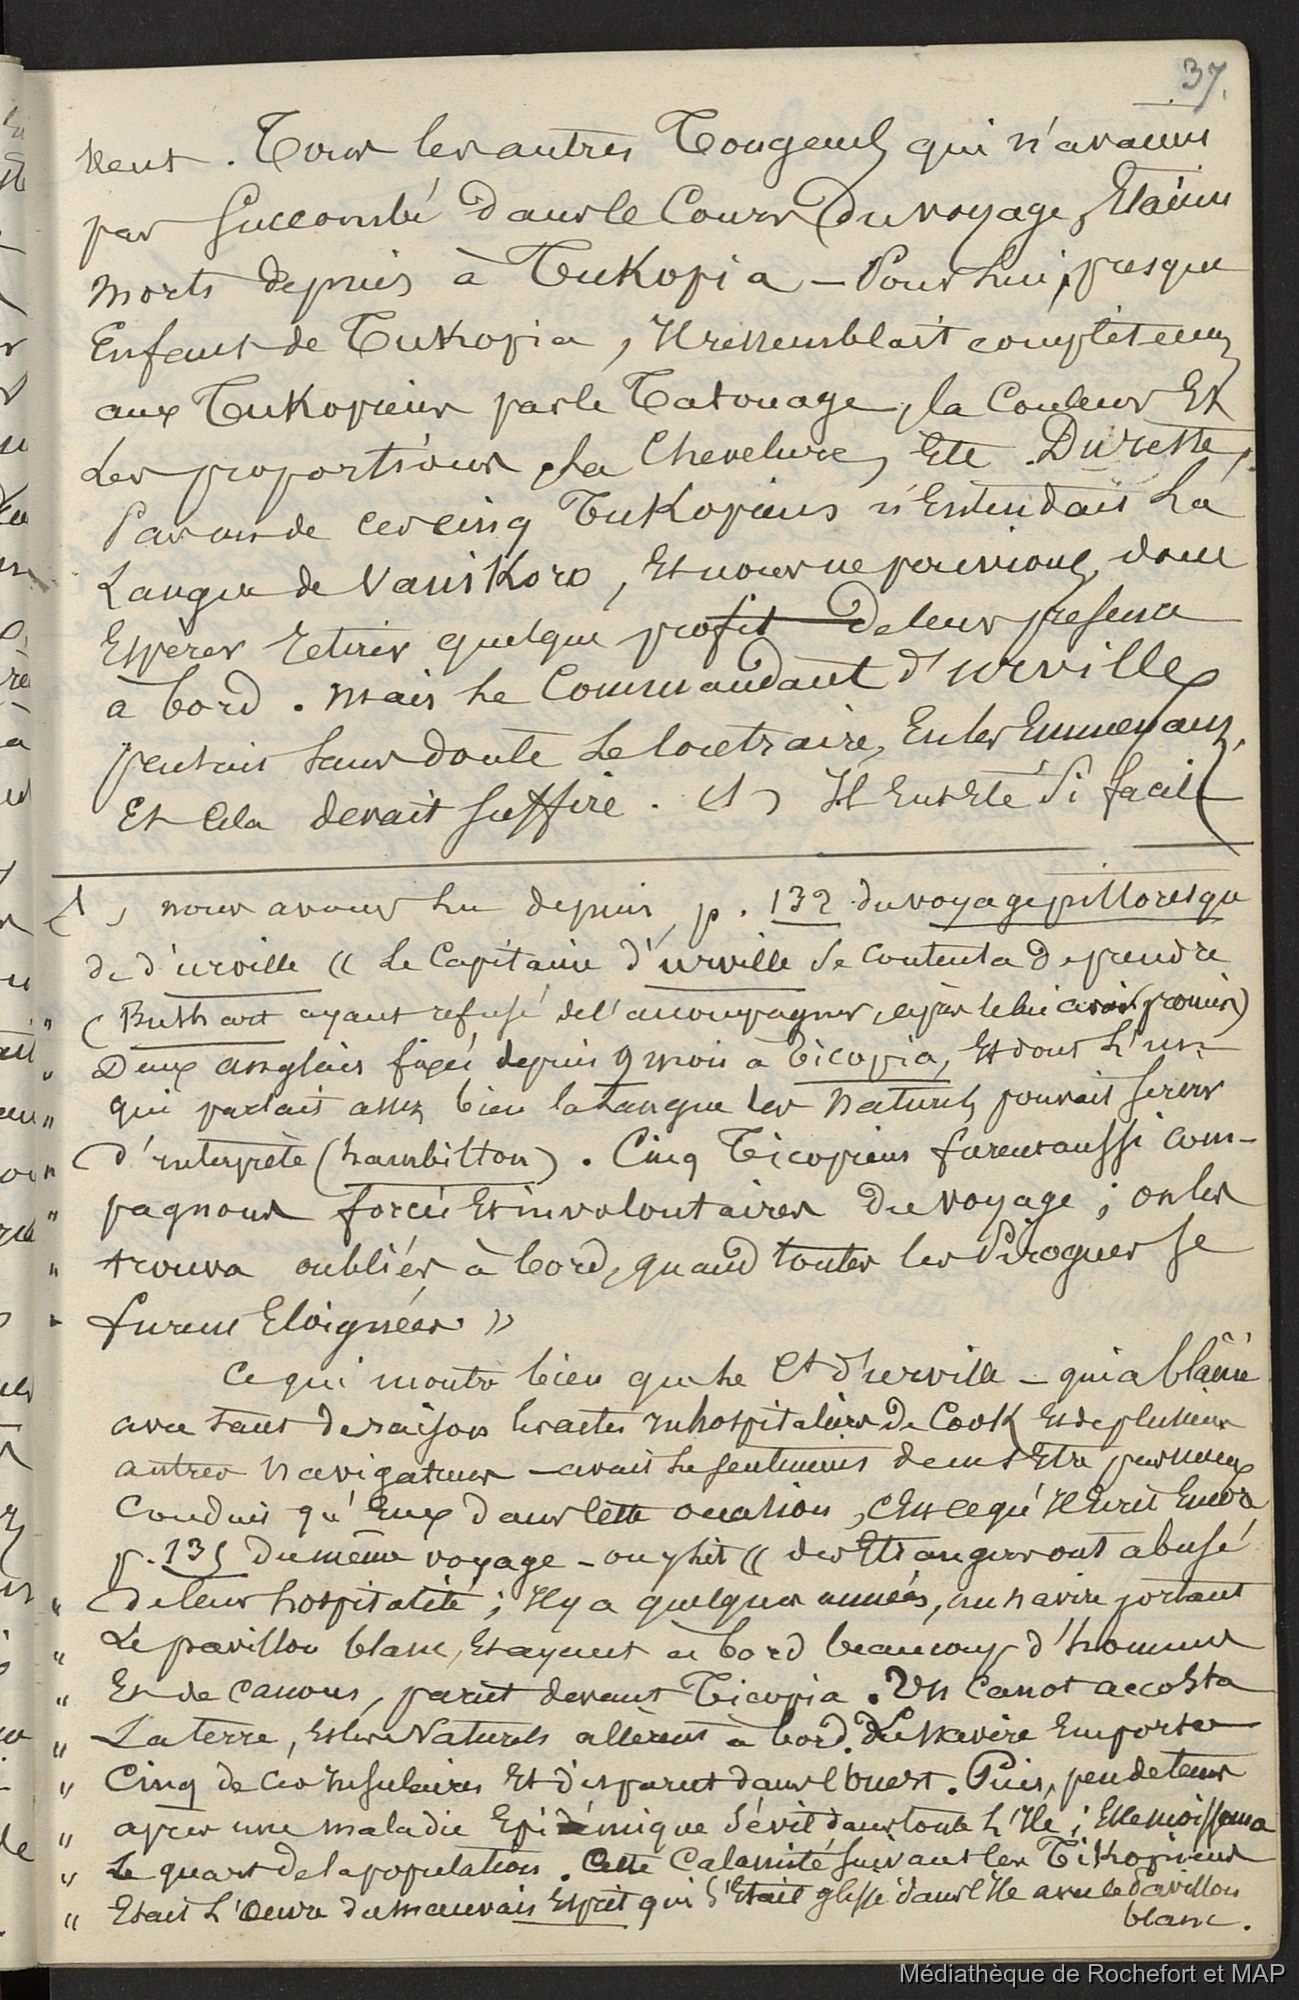 37.
vent. Tous les autres Tongens qui n'avaient
pas succombé dans le cours du voyage, Etaient
morts depuis à Tukopia — Pour lui, presque
Enfant de Tukopia, Il ressemblait complètement
aux Tukopiens par le Tatouage, la Couleur Et
Les proportions, la Chevelure, Etc. Du reste,
Pas un de ces cinq Tukopiens n'Entendait La
Langue de Vanikoro, Et nous ne pouvions donc
Espérer retirer quelque profit de leur présence
à bord. Mais Le Commandant d'urville
pensait sans doute Le Contraire, En les Emmenant,
Et Cela devait suffire. (1) Il Eut Eté si facile
(1) nous avons Lu depuis, p. 132 du voyage pittoresque
de d'urville « Le Capitaine d'urville se contenta de prendre
" (Bushart ayant refusé de l'accompagner, après le lui avoir promis)
" Deux anglais fixés depuis 9 mois à Ticopia, Et dont L'un
" qui parlait assez bien la Langue des Naturels pouvait servir
" d'interprète (hambilton). Cinq Ticopiens furent aussi com-
" pagnons forcés Et involontaires du voyage ; on les
" trouva oubliés à bord, quand toutes les Pirogues se
" furent Eloignées »
Ce qui montre bien que Le Ct d'urville — qui a blâmé
avec tant de raison les actes inhospitaliers de Cook Et de plusieurs
autres Navigateurs — avait Le sentiment de ne s'Etre pas mieux
Conduit qu'Eux dans cette occasion, c'Est ce qu'Il Ecrit Encore
p. 135 du même voyage — on y lit « des Etrangers ont abusé
" de leur hospitalité ; Il y a quelques années, un navire portant
" Le pavillon blanc, Et ayant à bord beaucoup d'hommes
" Et de Canons, parut devant Ticopia. Un Canot accosta
" La terre, Et les Naturels allèrent à bord. Le Navire Emporta
" Cinq de ces Insulaires Et disparut dans l'ouest. Puis, peu de tems
" après une maladie Epidémique sévit dans toute L'Ile ; Elle moissonna
" Le quart de la population. Cette Calamité suivant les Tikopiens
" Etait L'oeuvre du mauvais Esprit qui s'Etait glissé dans l'Ile avec le Pavillon
blanc.
Médiathèque de Rochefort et MAP